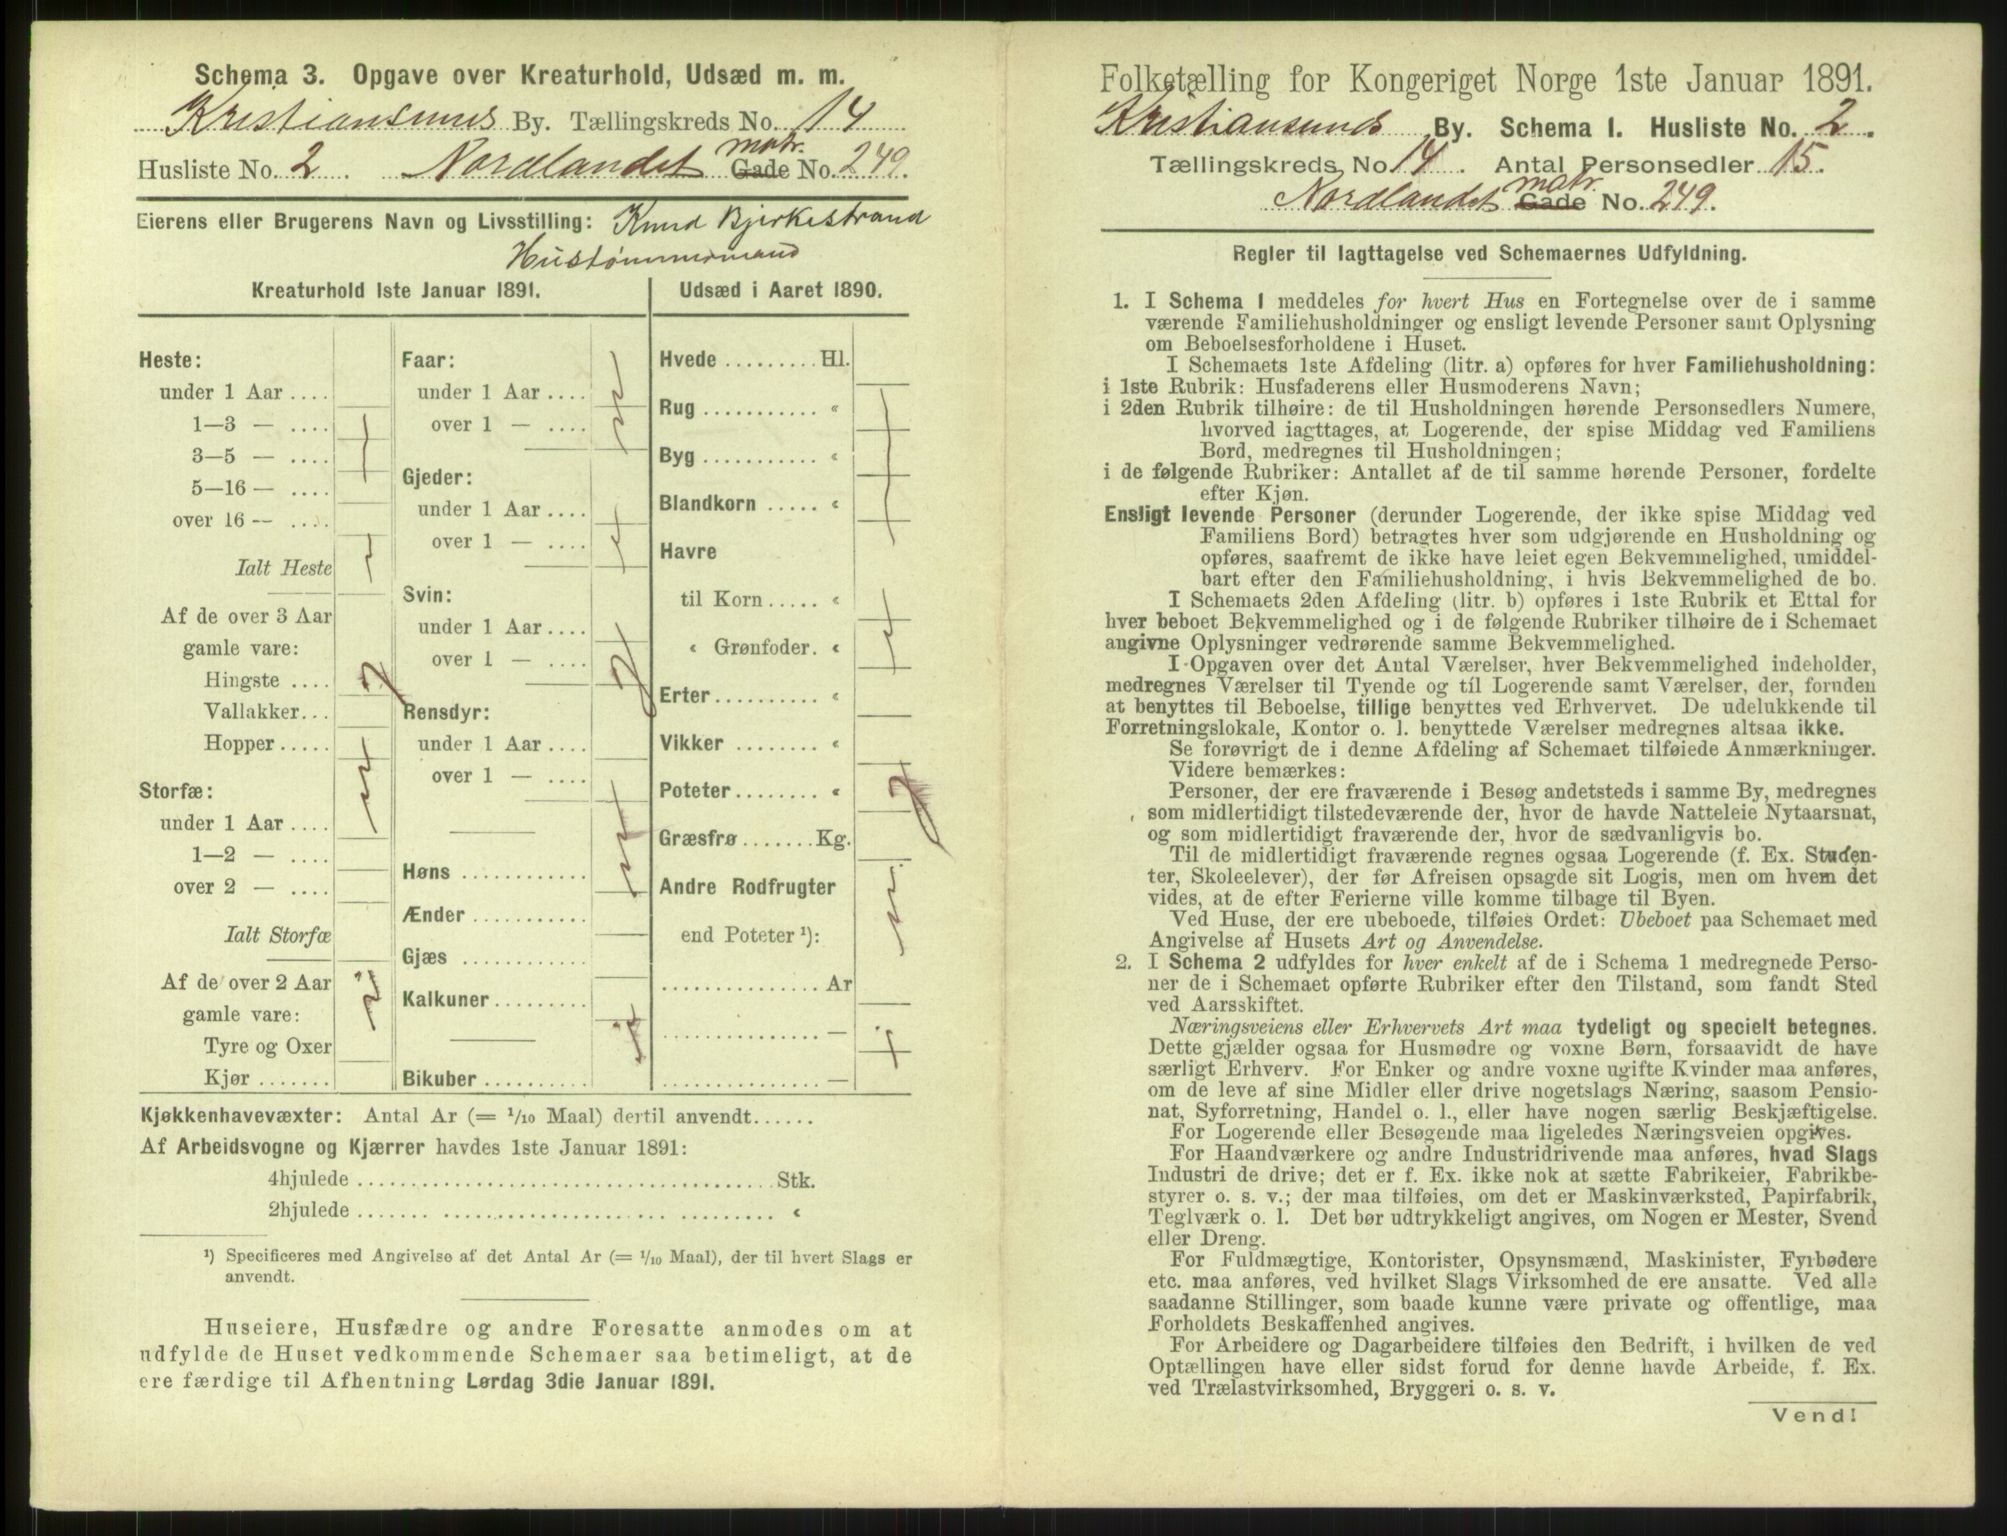 Schema 3. Opgave over Kreaturhold, Udsæd m. m.
Kristiansunds By. Tællingskreds No. 14
Husliste No. 2 . Nordlandet matr. Gade No. 249.
Eierens eller Brugerens Navn og Livsstilling: Knud Bjerkestrand
Hustømmermand
Kreaturhold 1ste Januar 1891.
Heste:
under 1 Aar ....
1—3 — ....
3—5 — ....
5—16 — ....
over 16 — ....
Ialt Heste
Af de over 3 Aar
gamle vare:
Hingste ....
Vallakker...
Hopper.....
Storfæ:
under 1 Aar ....
1—2 — ....
over 2 — ....
Ialt Storfæ
Af de over 2 Aar
gamle vare:
Tyre og Oxer
Kjør.......
Faar:
under 1 Aar ....
over 1 — ....
Gjeder:
under 1 Aar ....
over 1 — ....
Svin:
under 1 Aar ....
over 1 — ....
Rensdyr:
under 1 Aar ....
over 1 — ....
Høns ............
Ænder ...........
Gjæs ............
Kalkuner.........
Bikuber ..........
Udsæd i Aaret 1890.
Hvede ......... Hl.
Rug ........... “
Byg ........... “
Blandkorn ..... “
Havre
til Korn ..... “
“ Grønfoder. “
Erter ......... “
Vikker ........ “
Poteter........ “
Græsfrø ....... Kg.
Andre Rodfrugter
end Poteter ¹):
............... Ar
............... —
............... —
Kjøkkenhavevæxter: Antal Ar (= 1/10 Maal) dertil anvendt......
Af Arbeidsvogne og Kjærrer havdes 1ste Januar 1891:
4hjulede ........................................ Stk.
2hjulede ........................................ “
¹) Specificeres med Angivelse af det Antal Ar (= 1/10 Maal), der til hvert Slags er
anvendt.
Huseiere, Husfædre og andre Foresatte anmodes om at
udfylde de Huset vedkommende Schemaer saa betimeligt, at de
ere færdige til Afhentning Lørdag 3die Januar 1891.
Folketælling for Kongeriget Norge 1ste Januar 1891.
Kristiansunds By. Schema I. Husliste No. 2 .
Tællingskreds No 14 . Antal Personsedler 15.
Nordlandet matr. Gade No. 249.
Regler til Iagttagelse ved Schemaernes Udfyldning.
1. I Schema 1 meddeles for hvert Hus en Fortegnelse over de i samme
værende Familiehusholdninger og ensligt levende Personer samt Oplysning
om Beboelsesforholdene i Huset.
I Schemaets 1ste Afdeling (litr. a) opføres for hver Familiehusholdning:
i 1ste Rubrik: Husfaderens eller Husmoderens Navn;
i 2den Rubrik tilhøire: de til Husholdningen hørende Personsedlers Numere,
hvorved iagttages, at Logerende, der spise Middag ved Familiens
Bord, medregnes til Husholdningen;
i de følgende Rubriker: Antallet af de til samme hørende Personer, fordelte
efter Kjøn.
Ensligt levende Personer (derunder Logerende, der ikke spise Middag ved
Familiens Bord) betragtes hver som udgjørende en Husholdning og
opføres, saafremt de ikke have leiet egen Bekvemmelighed, umiddel-
bart efter den Familiehusholdning, i hvis Bekvemmelighed de bo.
I Schemaets 2den Afdeling (litr. b) opføres i 1ste Rubrik et Ettal for
hver beboet Bekvemmelighed og i de følgende Rubriker tilhøire de i Schemaet
angivne Oplysninger vedrørende samme Bekvemmelighed.
I Opgaven over det Antal Værelser, hver Bekvemmelighed indeholder,
medregnes Værelser til Tyende og til Logerende samt Værelser, der, foruden
at benyttes til Beboelse, tillige benyttes ved Erhvervet. De udelukkende til
Forretningslokale, Kontor o. l. benyttede Værelser medregnes altsaa ikke.
Se forøvrigt de i denne Afdeling af Schemaet tilføiede Anmærkninger.
Videre bemærkes:
Personer, der ere fraværende i Besøg andetsteds i samme By, medregnes
som midlertidigt tilstedeværende der, hvor de havde Natteleie Nytaarsnat,
og som midlertidigt fraværende der, hvor de sædvanligvis bo.
Til de midlertidigt fraværende regnes ogsaa Logerende (f. Ex. Studen-
ter, Skoleelever), der før Afreisen opsagde sit Logis, men om hvem det
vides, at de efter Ferierne ville komme tilbage til Byen.
Ved Huse, der ere ubeboede, tilføies Ordet: Ubeboet paa Schemaet med
Angivelse af Husets Art og Anvendelse.
2. I Schema 2 udfyldes for hver enkelt af de i Schema 1 medregnede Perso-
ner de i Schemaet opførte Rubriker efter den Tilstand, som fandt Sted
ved Aarsskiftet.
Næringsveiens eller Erhvervets Art maa tydeligt og specielt betegnes.
Dette gjælder ogsaa for Husmødre og voxne Børn, forsaavidt de have
særligt Erhverv. For Enker og andre voxne ugifte Kvinder maa anføres,
om de leve af sine Midler eller drive nogetslags Næring, saasom Pensio-
nat, Syforretning, Handel o. l., eller have nogen særlig Beskjæftigelse.
For Logerende eller Besøgende maa ligeledes Næringsveien opgives.
For Haandværkere og andre Industridrivende maa anføres, hvad Slags
Industri de drive; det er f. Ex. ikke nok at sætte Fabrikeier, Fabrikbe-
styrer o. s. v.; der maa tilføies, om det er Maskinværksted, Papirfabrik,
Teglværk o. l. Det bør udtrykkeligt angives, om Nogen er Mester, Svend
eller Dreng.
For Fuldmægtige, Kontorister, Opsynsmænd, Maskinister, Fyrbødere
etc. maa anføres, ved hvilket Slags Virksomhed de ere ansatte. Ved alle
saadanne Stillinger, som baade kunne være private og offentlige, maa
Forholdets Beskaffenhed angives.
For Arbeidere og Dagarbeidere tilføies den Bedrift, i hvilken de ved
Optællingen have eller sidst forud for denne havde Arbeide, f. Ex.
ved Trælastvirksomhed, Bryggeri o. s. v.
Vend!